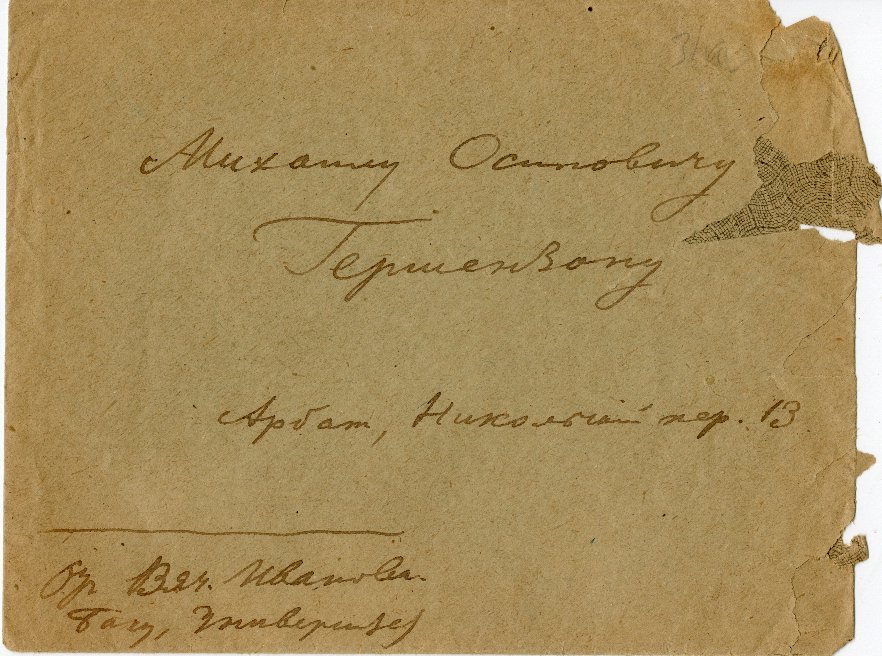 Михаилу Осиповичу
Гершензону
Арбат, Никольский пер. 13
От Вяч. Иванова.
Баку, Университет